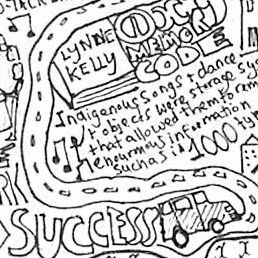 LYNNE
KELLY
MEMORY
CODE
Indigenous songs + dance
+ objects were storage
that allowed them to
enourmous information
such as : 1000
SUCCESS